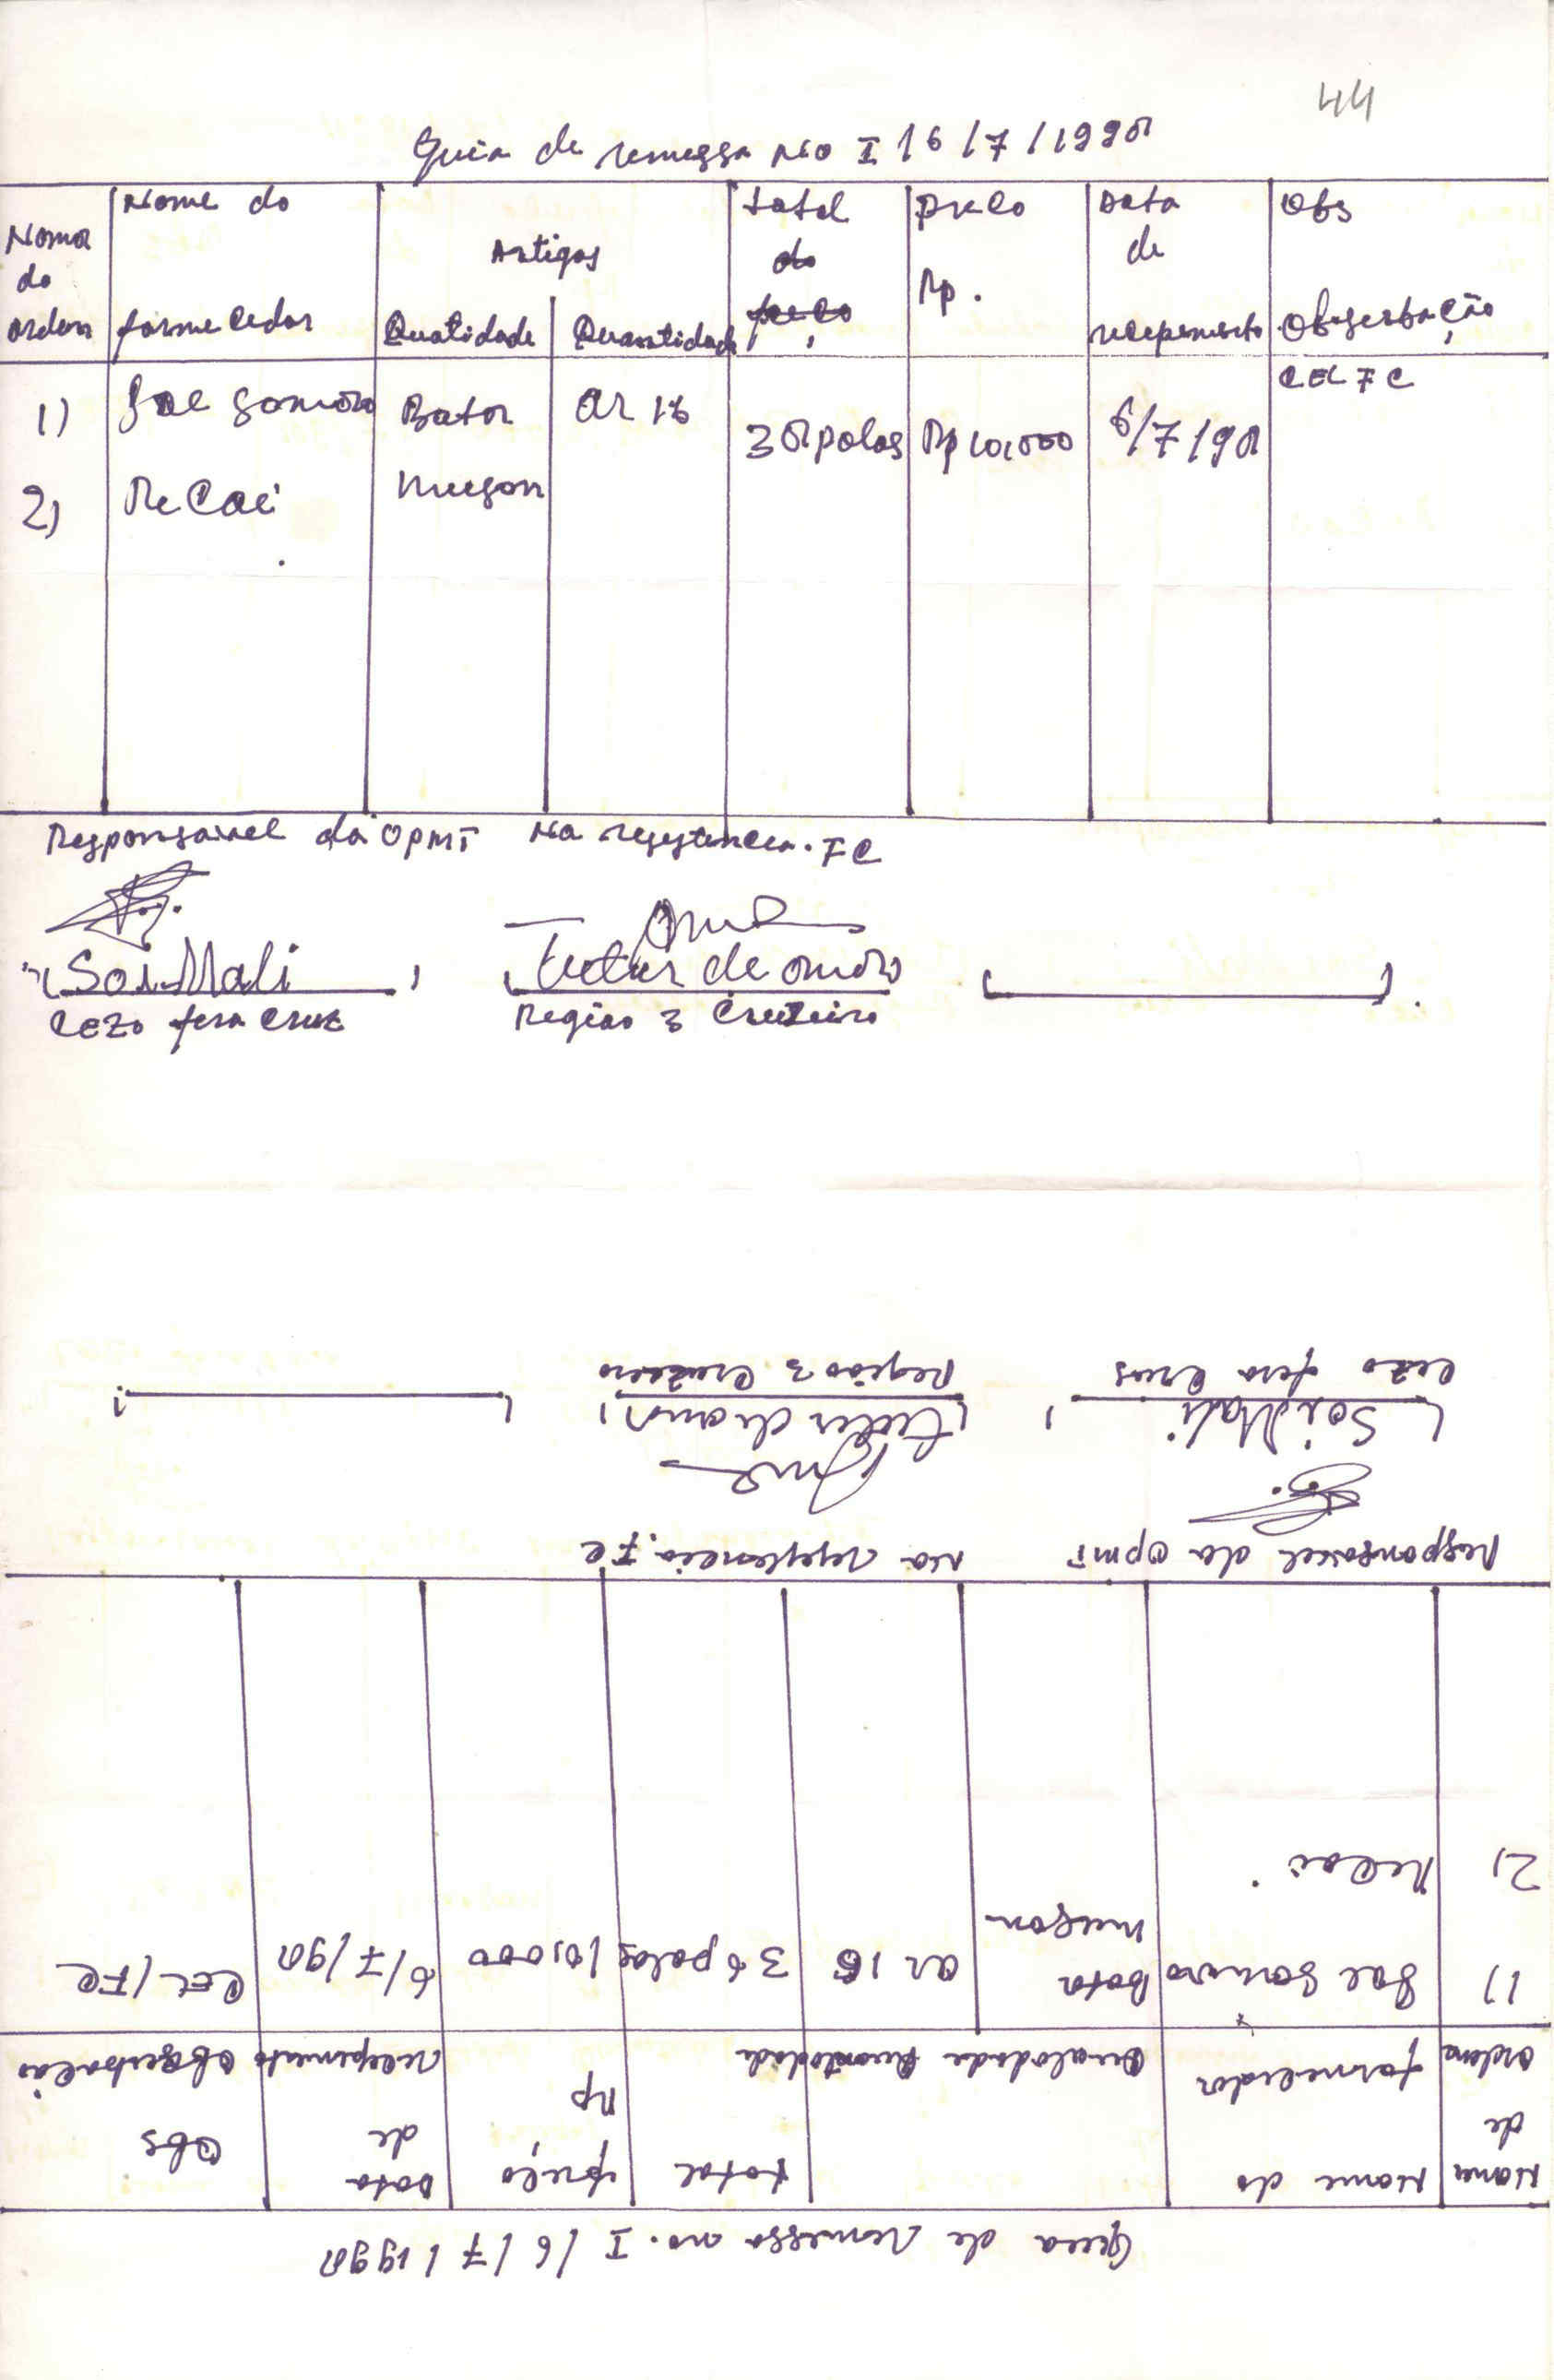 44
Guia de remessa No I 16/7/1990
Noma do orden
Nome do fornecedor
Artigos
Qualidade
Quantidade
total do preco
preco Rp.
Data de recepemento
Obs Obserbação
1) Sae Somoro Bator ar 16 30 polos Rp 10,000 6/7/90 CEL FC
2) Re Cai musson
Responsavel da OPMT Na resestencia. FC
Soi Mali
de
Cezo fera Cruz
Região 3 Cruzeiro
Guia de remessa no. I /6/7/1990
Noma de ordem
Nome do fornecedor
Qualodade
Quantodade
total
preço Rp
Data de recepemento
Obs Obserbacão
1) Sae Somoro Bota ar 16 30 polos 10,000 6/7/90 CEL/FC
2) Re Cai musson
Responsavel da OPMT Na resestencia. FC
Soi Mali
de
Cezo fera Crus
Região 3 Cruzeiro